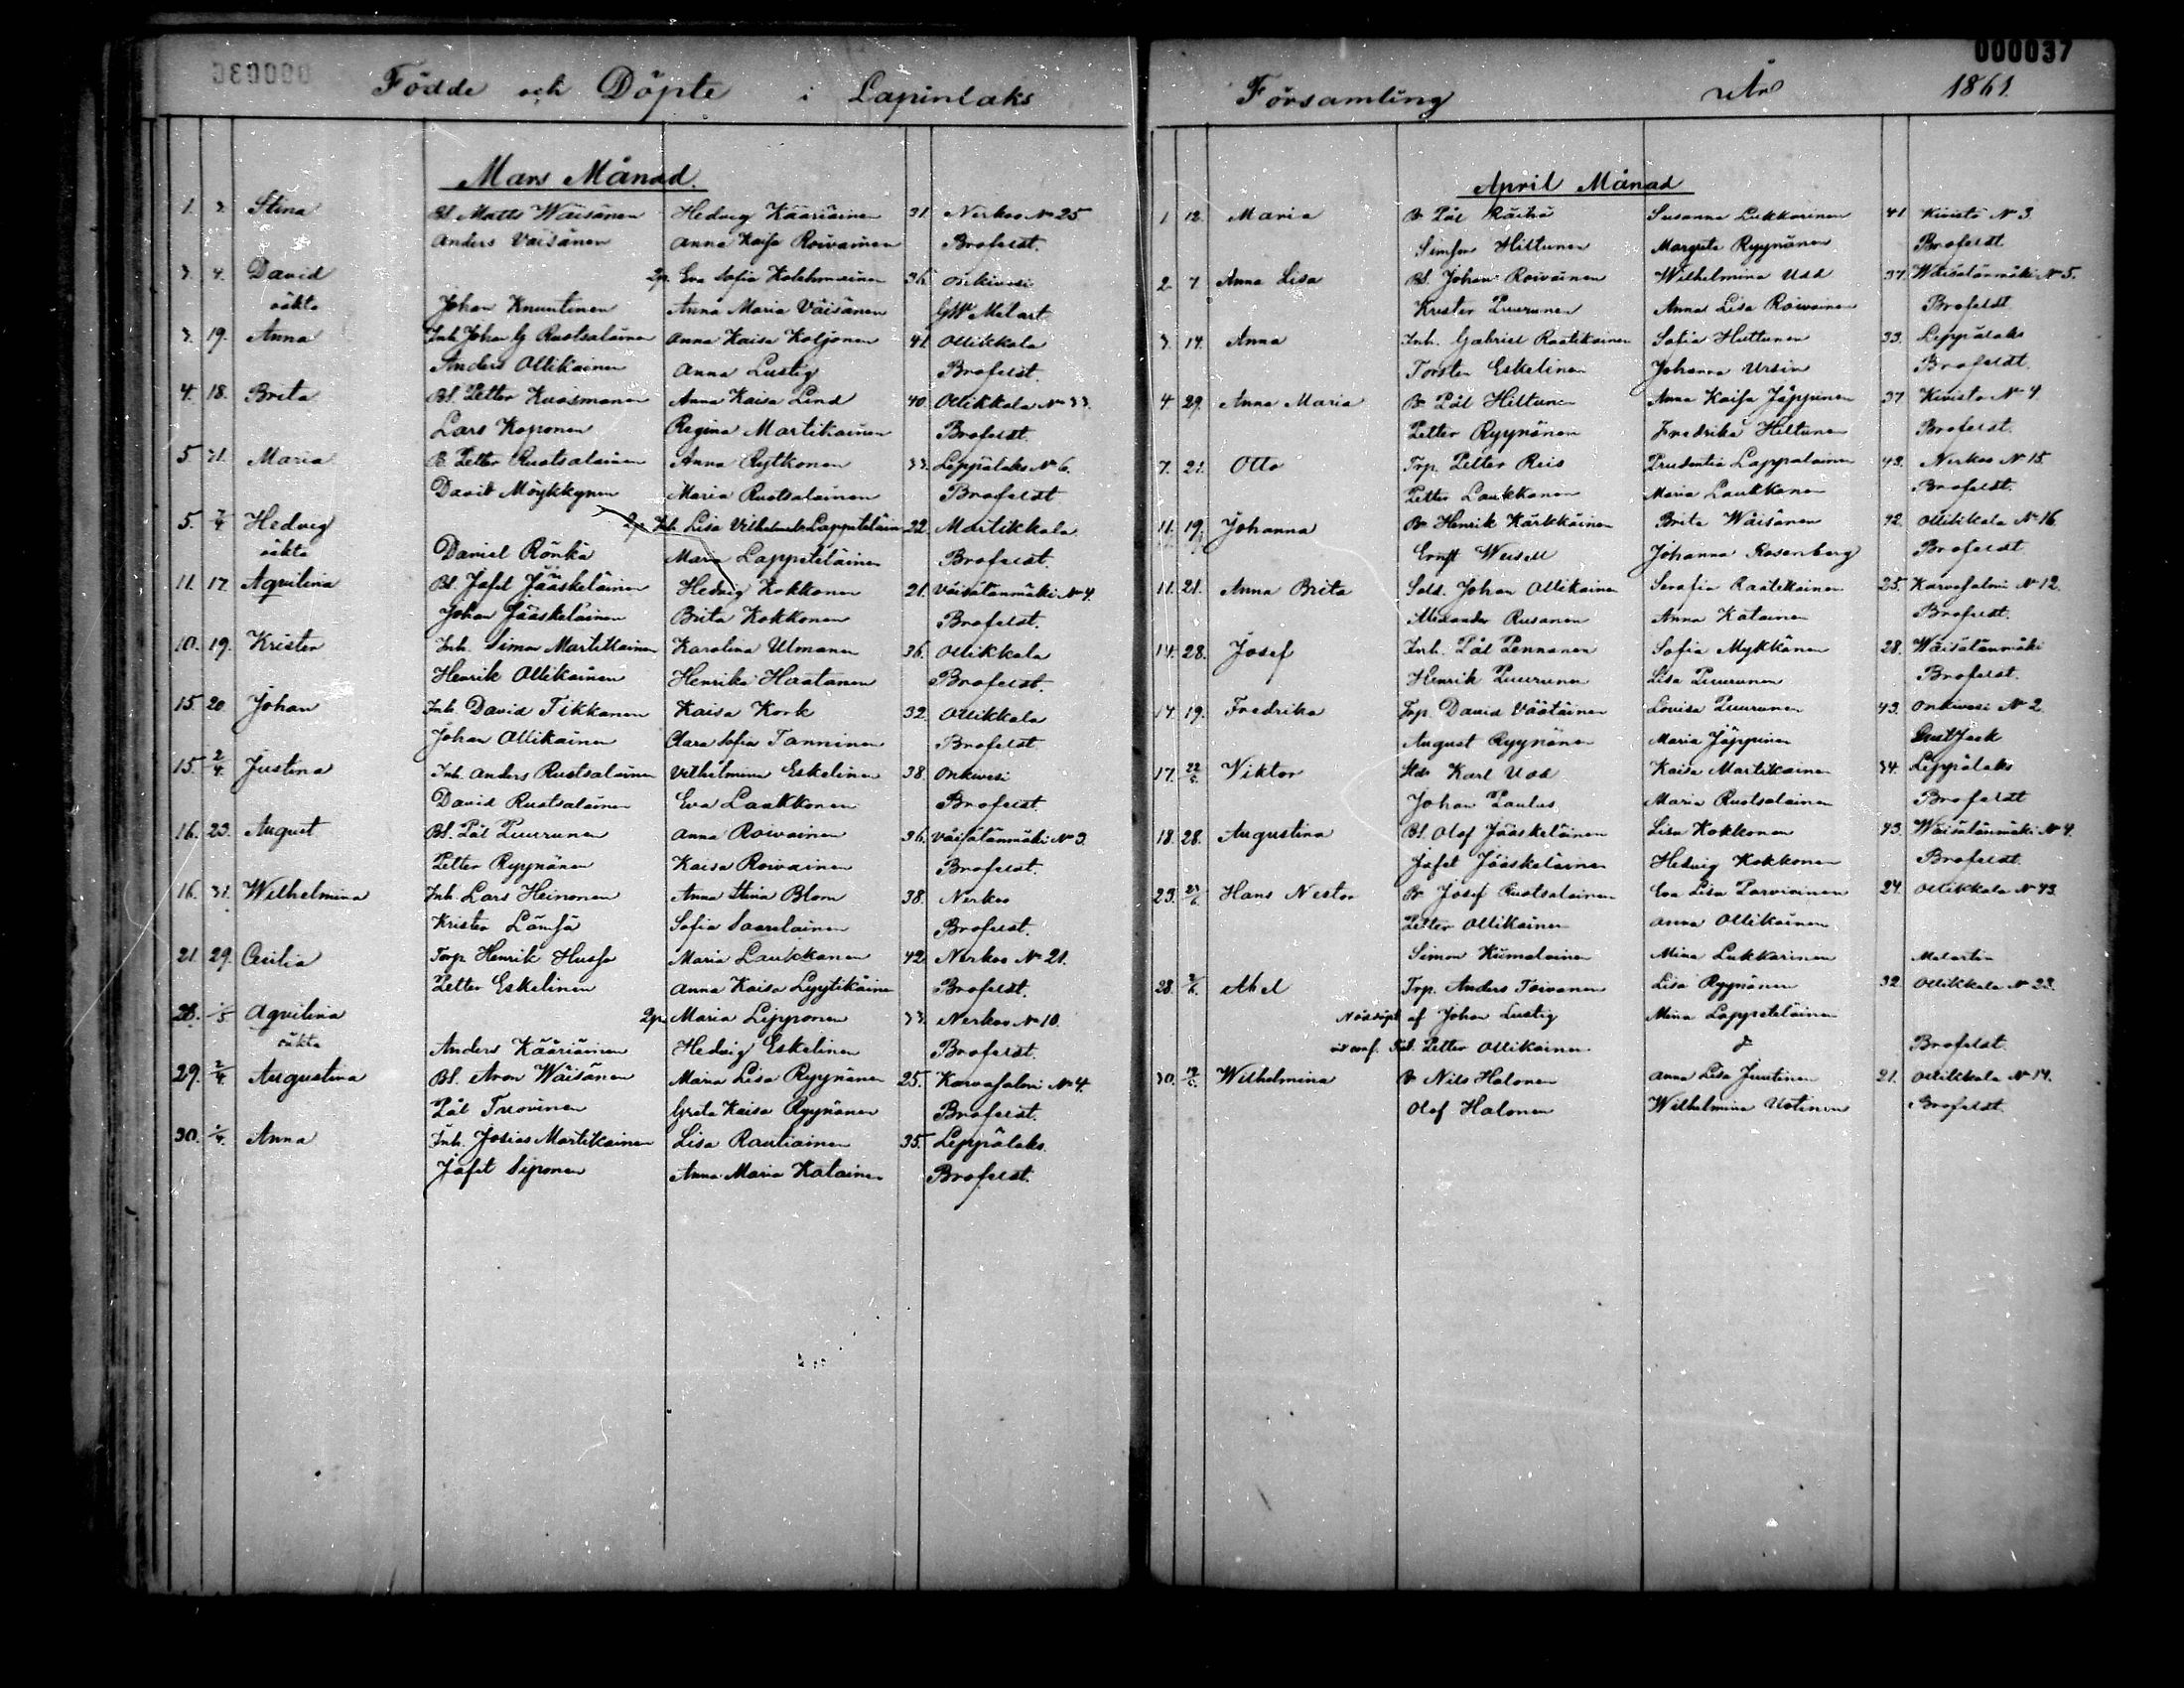 000037
Födde och Döpte i Lapinlaks
Mars Månad.
1. 3. Stina Bd. Matts Wäisänen Hedvig Kääriäinen 31. Nerkoo No 25
Anders Väisänen Anna Kaisa Roivainen Brofeldt.
3. 4. David 2p. Eva Sofia Kolehmainen 36. Onkivesi
oäkta Johan Knuutinen Anna Maria Väisänen GW Melart
3. 19. Anna Inh. Johan G Ruotsalainen Anna Kaisa Koljonen 41. Ollikkala
Anders Ollikainen Anna Lustig Brofeldt.
4. 18. Brita Bd. Petter Kuosmanen Anna Kaisa Lind 40. Ollikkala No 33.
Lars Koponen Regina Martikainen Brofeldt.
5. 31. Maria B. Petter Ruotsalainen Anna Rytkönen 33. Leppälaks No 6.
David Möykkynen Maria Ruotsalainen Brofeldt
5. 7/4 Hedvig 2p Inh. Lisa Vilhelmina Lappeteläinen 22. Martikkala
oäkta Daniel Rönkä Maria Lappeteläinen Brofeldt.
11. 17. Aqvilina Bd. Jafet Jääskeläinen Hedvig Kokkonen 21. Väisälänmäki No 4.
Johan Jääskeläinen Brita Kokkonen Brofeldt.
10. 19. Krister Inh. Simon Martikainen Karolina Ulmanen 36. Ollikkala
Henrik Ollikainen Henrika Haatanen Brofeldt.
15. 20. Johan Inh. David Tikkanen Kaisa Kork 32. Ollikkala
Johan Ollikainen Clara Sofia Tanninen Brofeldt
15. 2/4. Justina Inh. Anders Ruotsalainen Vilhelmina Eskelinen 38. Onkivesi
David Ruotsalainen Eva Laukkonen Brofeldt
16. 23. August Bd. Pål Puurunen Anna Roivainen 36. Väisälänmäki No 3
Petter Ryynänen Kaisa Roivainen Brofeldt.
16. 31. Wilhelmina Inh. Lars Heinonen Anna Stina Blom 38. Nerkoo
Krister Lämsä Sofia Saarelainen Brofeldt.
21. 29. Cecilia Torp. Henrik Husso Maria Laukkanen 42. Nerkoo No 21.
Petter Eskelinen Anna Kaisa Lyytikäinen Brofeldt.
28. 1/5 Aqvilina 2p. Maria Lipponen 33. Nerkoo No 10.
oäkta Anders Kääriäinen Hedvig Eskelinen Brofeldt.
29. 2/4. Augustina Bd. Aron Wäisänen Maria Lisa Ryynänen 25. Karvasalmi No 4.
Pål Turovinen Greta Kaisa Ryynänen Brofeldt.
30. 1/4. Anna Inh. Josias Martikainen Lisa Rautiainen 35. Leppälaks.
Jafet Siponen Anna Maria Katainen Brofeldt.
Församling År 1861.
April Månad
1. 12. Maria B. Pål Räihä Susanna Lukkarinen 41. Kivistö No 3.
Simson Hiltunen Margreta Ryynänen Brofeldt
2. 7. Anna Lisa Bd. Johan Roivainen Wilhelmina Udd 37. Wäisälänmäki No 5.
Krister Puurunen Anna Lisa Roivainen Brofeldt
3. 14. Anna Inh. Gabriel Raatikainen Sofia Huttunen 33. Leppälaks
Torsten Eskelinen Johanna Ursin Brofeldt.
4. 29. Anna Maria B. Pål Hiltunen Anna Kaisa Jäppinen 37 Kivistö No 4
Petter Ryynänen Fredrika Hiltunen Brofeldt.
7. 21. Otto Trp. Petter Reis Prudentia Lappalainen 43. Nerkoo No 15.
Petter Laukkanen Maria Laukkanen Brofeldt.
11. 19 Johanna B. Henrik Kärkkäinen Brita Wäisänen 32. Ollikkala No 16.
Ernst Weisell Johanna Rosenberg Brofeldt
11. 21. Anna Brita Sold. Johan Ollikainen Serafia Raatikainen 25. Karvasalmi No 12.
Alexander Rusanen Anna Katainen Brofeldt.
14. 28. Josef Inh. Pål Pennanen Sofia Mykkänen 28. Wäisälänmäki
Henrik Puurunen Lisa Puurunen Brofeldt.
14. 19. Fredrika Trp. David Väätäinen Lovisa Puurunen 43. Onkivesi No 2.
August Ryynänen Maria Jäppinen
17. 22/5. Viktor Karl Udd Kaisa Martikainen 34. Leppälaks
Johan Paulus Maria Ruotsalainen Brofeldt
18. 28. Augustina Bd. Olof Jääskeläinen Lisa Kokkonen 43. Wäisälänmäki No 4.
Jafet Jääskeläinen Hedvig Kokkonen Brofeldt.
23. Hans Nestor B. Josef Ruotsalainen Eva Lisa Parviainen 24. Ollikkala No 43.
Petter Ollikainen Anna Ollikainen
Simon Kumulainen Mina Lukkarinen Melartin
28. Abel Trp. Anders Toivanen Lisa Ryynänen 32. Ollikkala No 23.
Nöddöpt af Johan Lustig Mina Lappeteläinen
Petter Ollikainen Brofeldt
30. Wilhelmina B. Nils Halonen Anna Lisa Juutinen 21. Ollikkala No 14.
Olof Halonen Wilhelmina Uotinen Brofeldt.